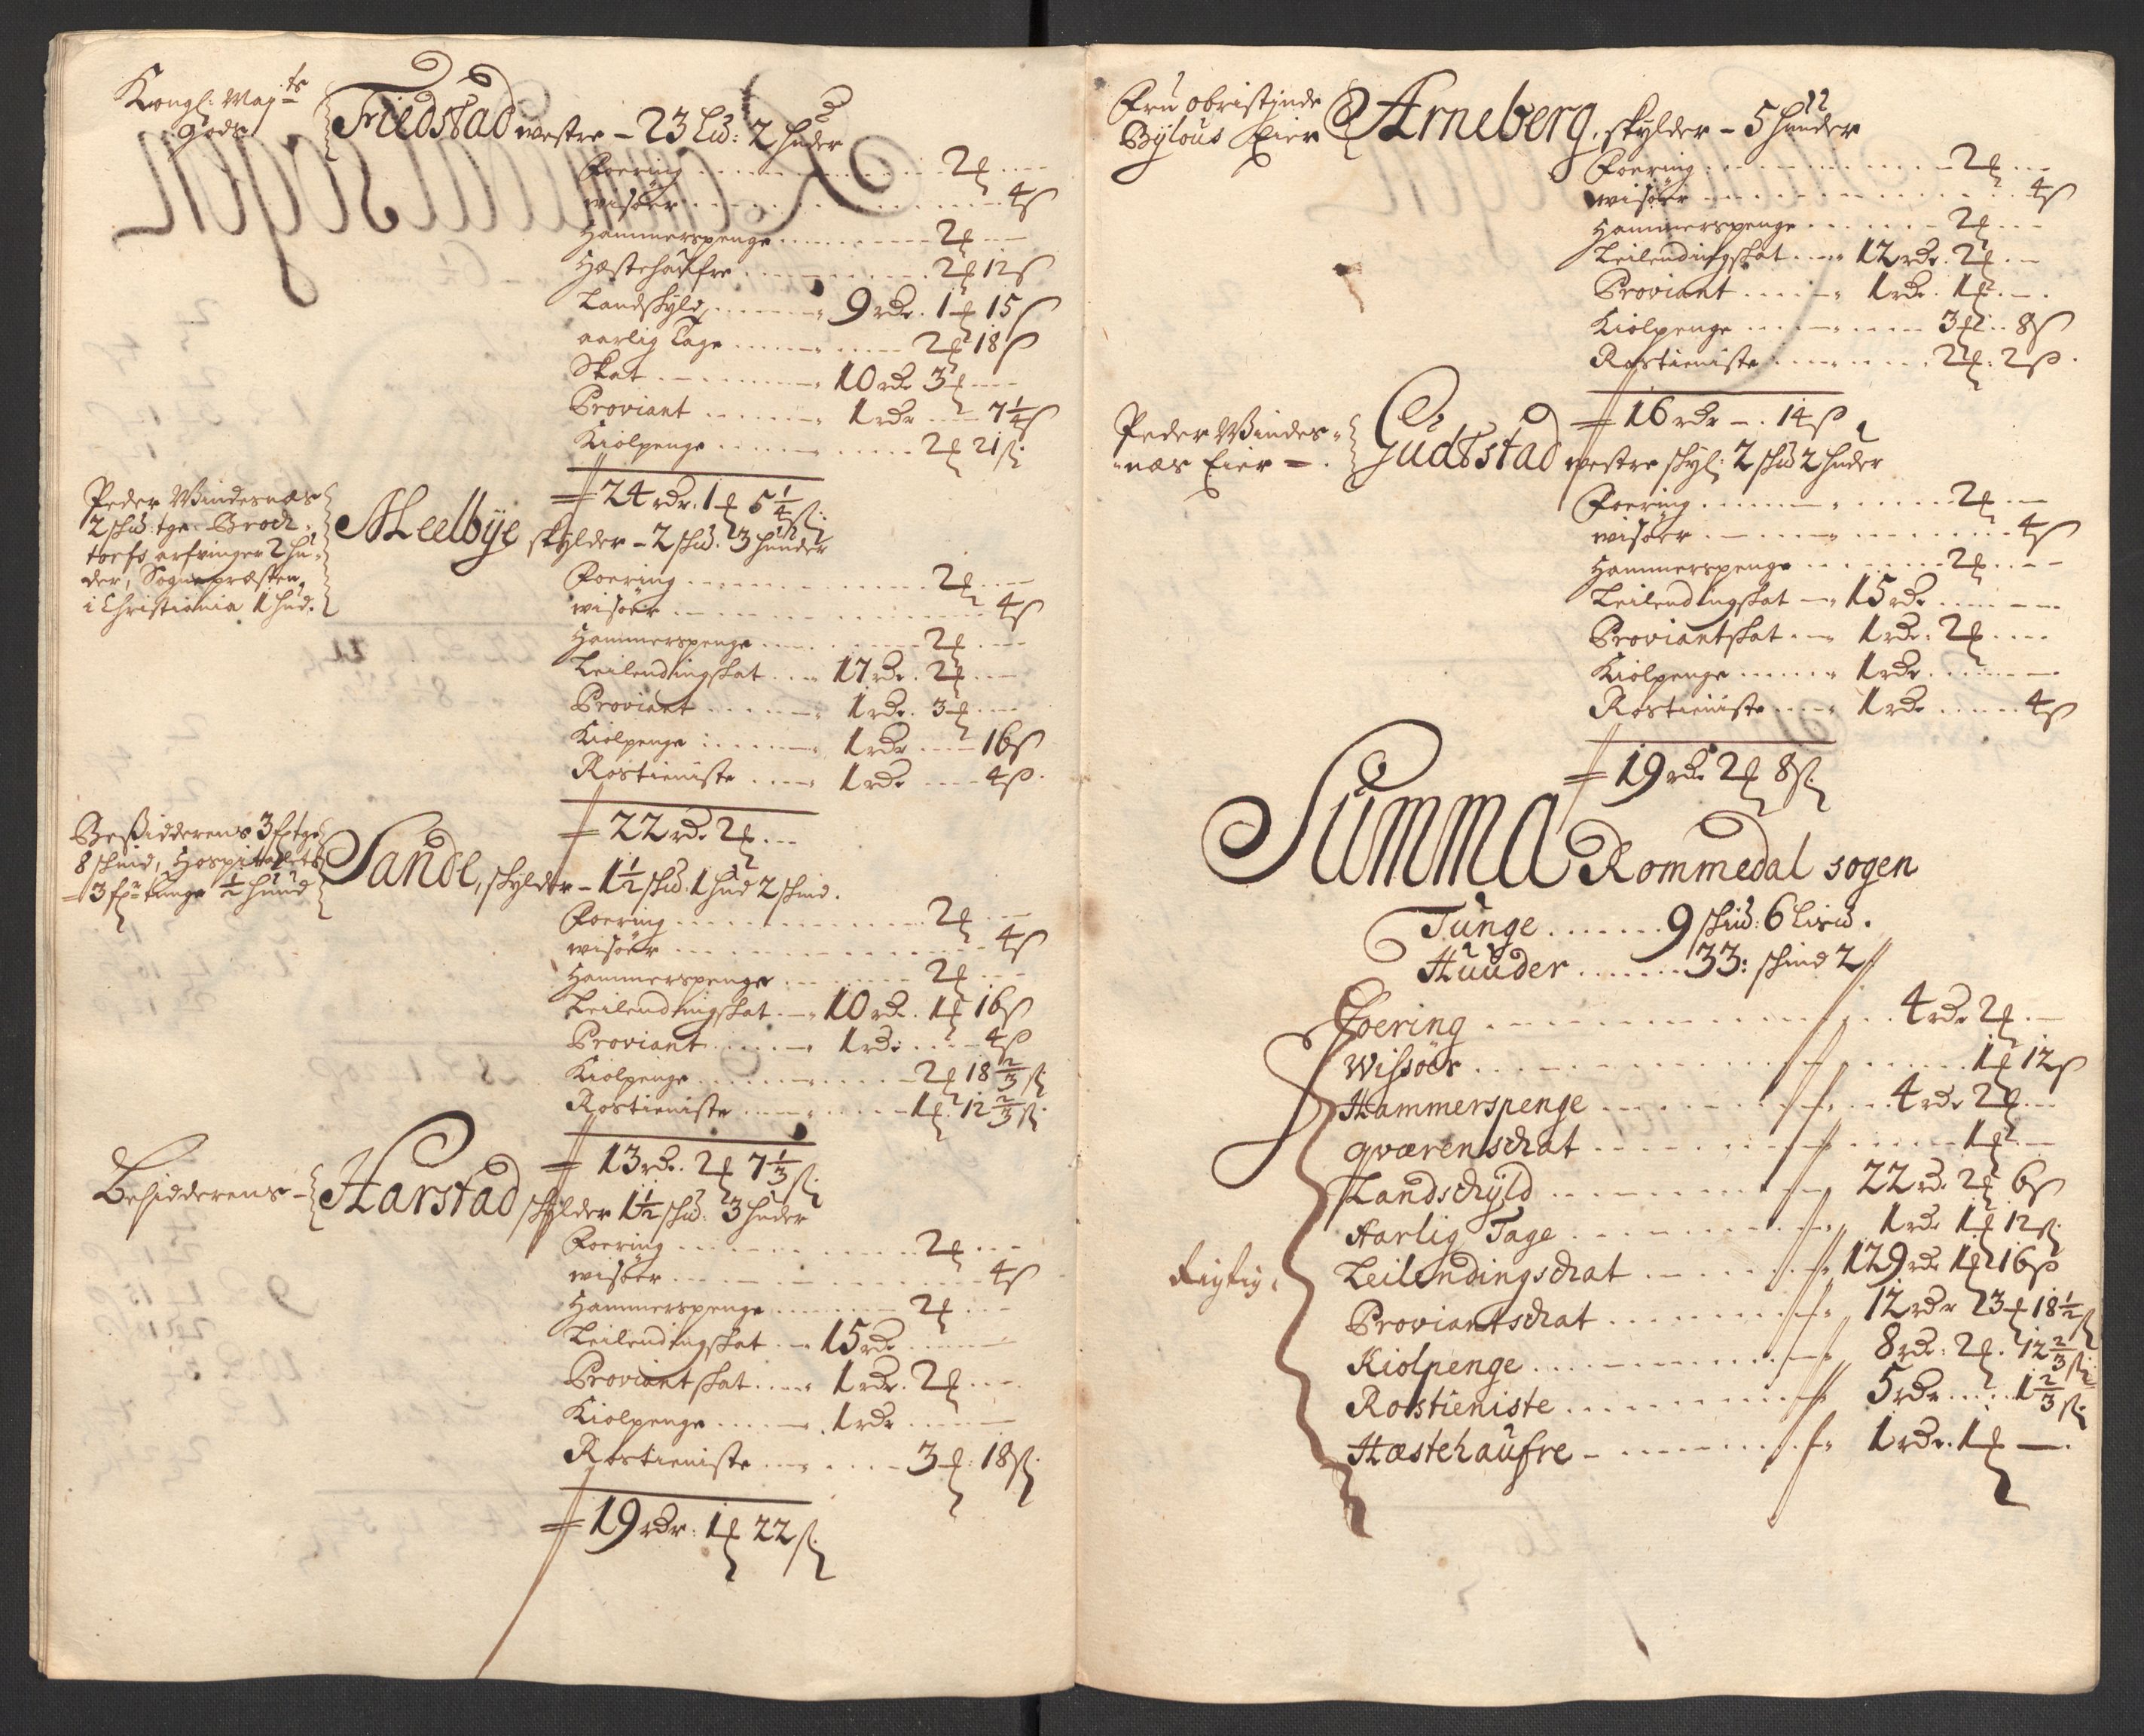 Kongl: May.ts
Godtz
Friedstad westre – 23 Lid: 2 huder
Foering 2 ʠ
wisöer 4 ß
Hammerspenge 2 ʠ
Hæstehaufre 2 ʠ 12 ß
Landskyld 9 rdr. 1 ʠ 15 ß
aarlig Tage 2 ʠ 18 ß
Skat 10 rdr 3 ʠ
Proviant 1 rdr 7 1/4 ß
Kiolpenge 2 ʠ 21 ß
24 rdr. 1 ʠ 5 1/4 ß
Peder Windesnæs
2 skid: tge. Brock-
torfs arfvinger 2 hu-
der, Sognepræsten
i Christiania 1 hud.
Meelbye skylder – 2 skid. 3 hunder
Foering 2 ʠ
wisöer 4 ß
Hammerspenge 2 ʠ
Leilendingskat 17 rdr. 2 ʠ
Proviant 1 rdr. 3 ʠ
Kiolpenge 1 rdr 16 ß
Rostieniste 1 rdr 4 ß
22 rdr. 2 ʠ
Besidderens 3 fptge
8 skind, Hospitalets
3 fp tunge 1/2 hund
Sande, skylder – 1 1/2 skid. 1 hud 2 skind.
Foering 2 ʠ
wisöer 4 ß
Hammerspenge 2 ʠ
Leilendingskat 10 rdr. 1 ʠ 16 ß
Proviant 1 rd: 4 ß
Kiolpenge 2 ʠ 18 2/3 ß
Rostieniste 1 ʠ 12 2/3 ß
13 rdr. 2 ʠ 7 1/3 ß
Besidderens – Harstad skylder 1 1/2 skid: 3 huder
Foering 2 ʠ
wisöer 4 ß
Hammerspenge 2 ʠ
Leilendingskat 15 rdr
Proviantskat 1 rdr. 2 ʠ
Kiolpenge 1 rdr
Rostieniste 3 ʠ: 18 ß
19 rdr: 1 ʠ 22 ß
Fru obristinde
Bÿlous Eier
Arneberg, skylder – 5 hunder
Foering 2 ʠ
wisöer 4 ß
Hammerspenge 2 ʠ
Leilendingskat 12 rdr. 2 ʠ
Proviant 1 rdr. 1 ʠ
Kiolpenge 3 ʠ 8 ß
Rostieniste 2 ʠ: 2 ß
16 rdr –. 14 ß
Peder Windes-
næs Eier –
Gudtstad westre skyl: 2 skid 2 huder
Foering 2 ʠ
wisöer 4 ß
Hammerspenge 2 ʠ
Leilendingskat 15 rdr
Proviantskat 1 rdr: 2 ʠ
Kiolpenge 1 rdr
Rostieniste 1 rdr 4 ß
19 rdr 2 ʠ 8 ß
Summa Rommedal sogen
Tunge 9 skid: 6 Lisid.
Huuder 33: skind 2
Foering 4 rdr 2 ʠ
Wissöer 1 ʠ 12 ß
Hammerspenge 4 rdr 2 ʠ
qværenschat 1 ʠ
Landschÿld 22 rd. 2 ʠ 6 ß
Aarlig Tage 1 rdr 1 ʠ 12 ß
Rigtig. Leilendingschat 129 rdr 1 ʠ 16 ß
Proviantschat 12 rdr 3 ʠ 18 1/2 ß
Kiolpenge 8 rdr: 2 ʠ. 12 2/3 ß
Rosstieniste 5 rdr 1 2/3 ß
Hæstehaufre – 1 rdr. 1 ʠ –